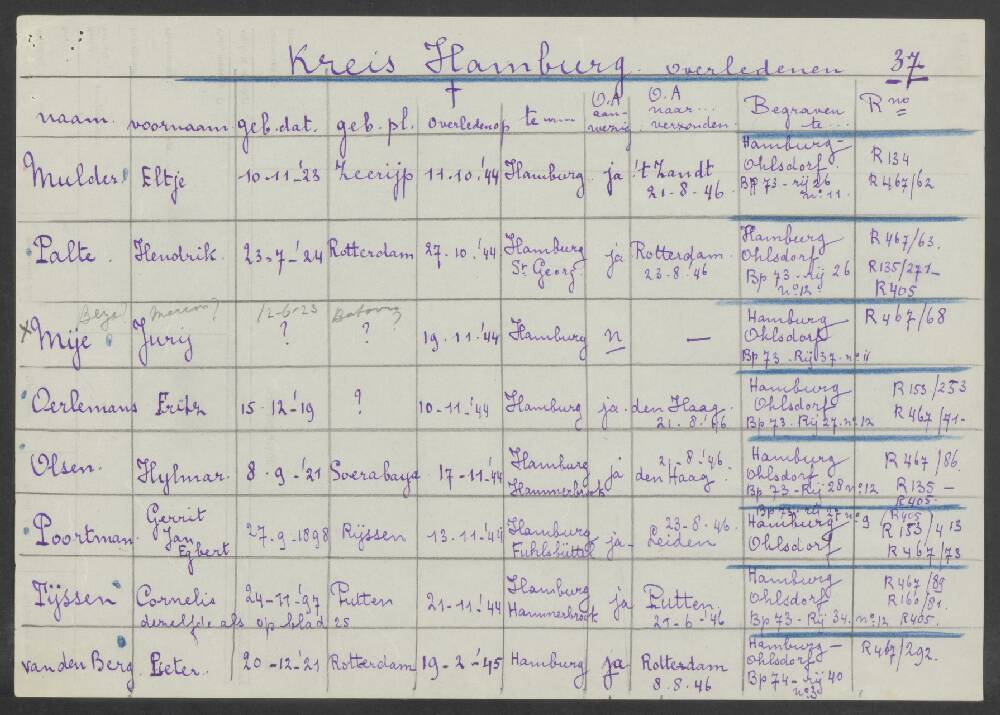 Kreis Hamburg. overledenen 37
naam. voornaam geb. dat. geb. pl. † overleden op te O.A aanwezig O.A naar verzonden. Begraven te R no
Mulder Eltje 10-11-'23 Zeerijp 11.10.'44 Hamburg ja 't Zandt 21-8-'46 Hamburg-Ohlsdorf. Bp 73-rij 26 no 11. R134 R467/62
Palte. Hendrik 23-7-'24 Rotterdam 27.10.'44 Hamburg St. Georg. ja Rotterdam. 23-8.'46 Hamburg Ohlsdorf Bp 73-Rij 26 no 12 R467/63. R135/271- R405
12-6-23
x Mije Jurij ? ? 19.11.'44 Hamburg n — Hamburg Ohlsdorf Bp 73-Rij 37. no 11 R467/68
Oerlemans Frits 15-12-'19 ? 10-11-'44 Hamburg ja. den Haag. 21.8.'46 Hamburg Ohlsdorf Bp 73-Rij 27. no 12 R153/253 R467/71-
Olsen. Hylmar. 8.9-'21 Soerabaya 17-11-'44 Hamburg Hammerbrook ja 21-8-'46- den Haag. Hamburg Ohlsdorf Bp 73-Rij 28 no 12 R467/86. R135- R405.
Poortman. Gerrit Jan Egbert 27.9-1898 Rijssen 13-11-'44 Hamburg Fuhlsbüttel ja- 23-8.'46. Leiden Bp 73-rij 27 no 9 Hamburg Ohlsdorf (R405) R153/413 R467/73
Tijssen Cornelis 24-11-'97 Putten 21-11-'44 Hamburg Hammerbrook ja Putten. 21-6-'46 Hamburg Ohlsdorf Bp 73-Rij 34. no 12 R467/89 R160/81. R405.
dezelfde als op blad 25
van den Berg Pieter. 20-12-'21 Rotterdam 19-2-'45 Hamburg ja Rotterdam 8.8.'46 Hamburg-Ohlsdorf. Bp 74-rij 40 no 3 R467/292.